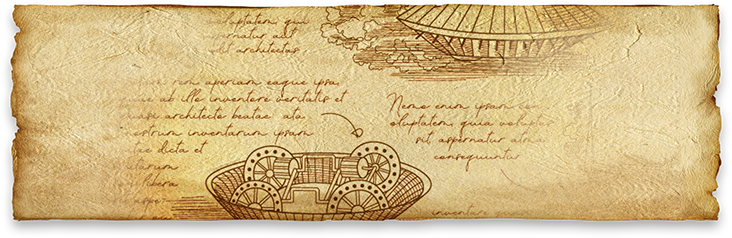 voluptatem, quia
aspernatur aut
odit architectas
rem aperiam eaque ipsa,
quae ab illo inventore veritatis et
quasi architecto beatae
nostrum inventarum ipsam
vitae dicta et
libera
Nemo enim ipsam
voluptatem, quia voluptas
sit aspernatur
consequuntur
inventore